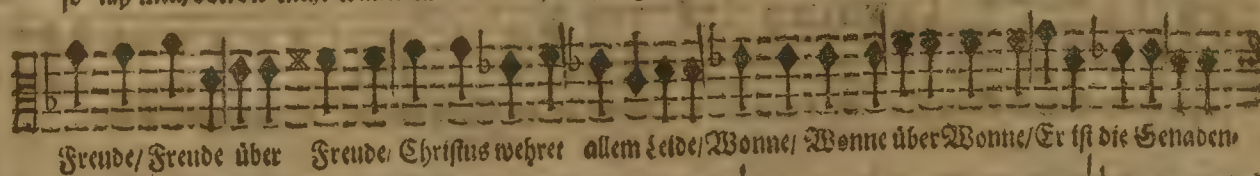 Freude/ Freude über Freude/ Christus wehret allem Leide/ Wonne/ Wonne über Wonne/ Er ist die Genaden-